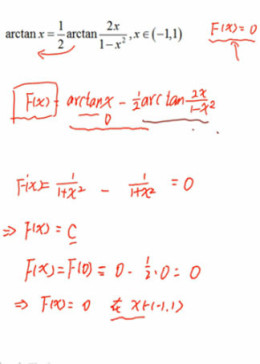 arctan x = 1/2 arctan 2x/(1-x²), x∈(-1,1)    F(x)=0
F(x) = arctanx - 1/2 arctan 2x/(1-x²)
0
F'(x)= 1/(1+x²) - 1/(1+x²) = 0
⇒ F(x) = C
F(x)=F(0)= 0 - 1/2·0 = 0
⇒ F(x)=0 在 x∈(-1,1)